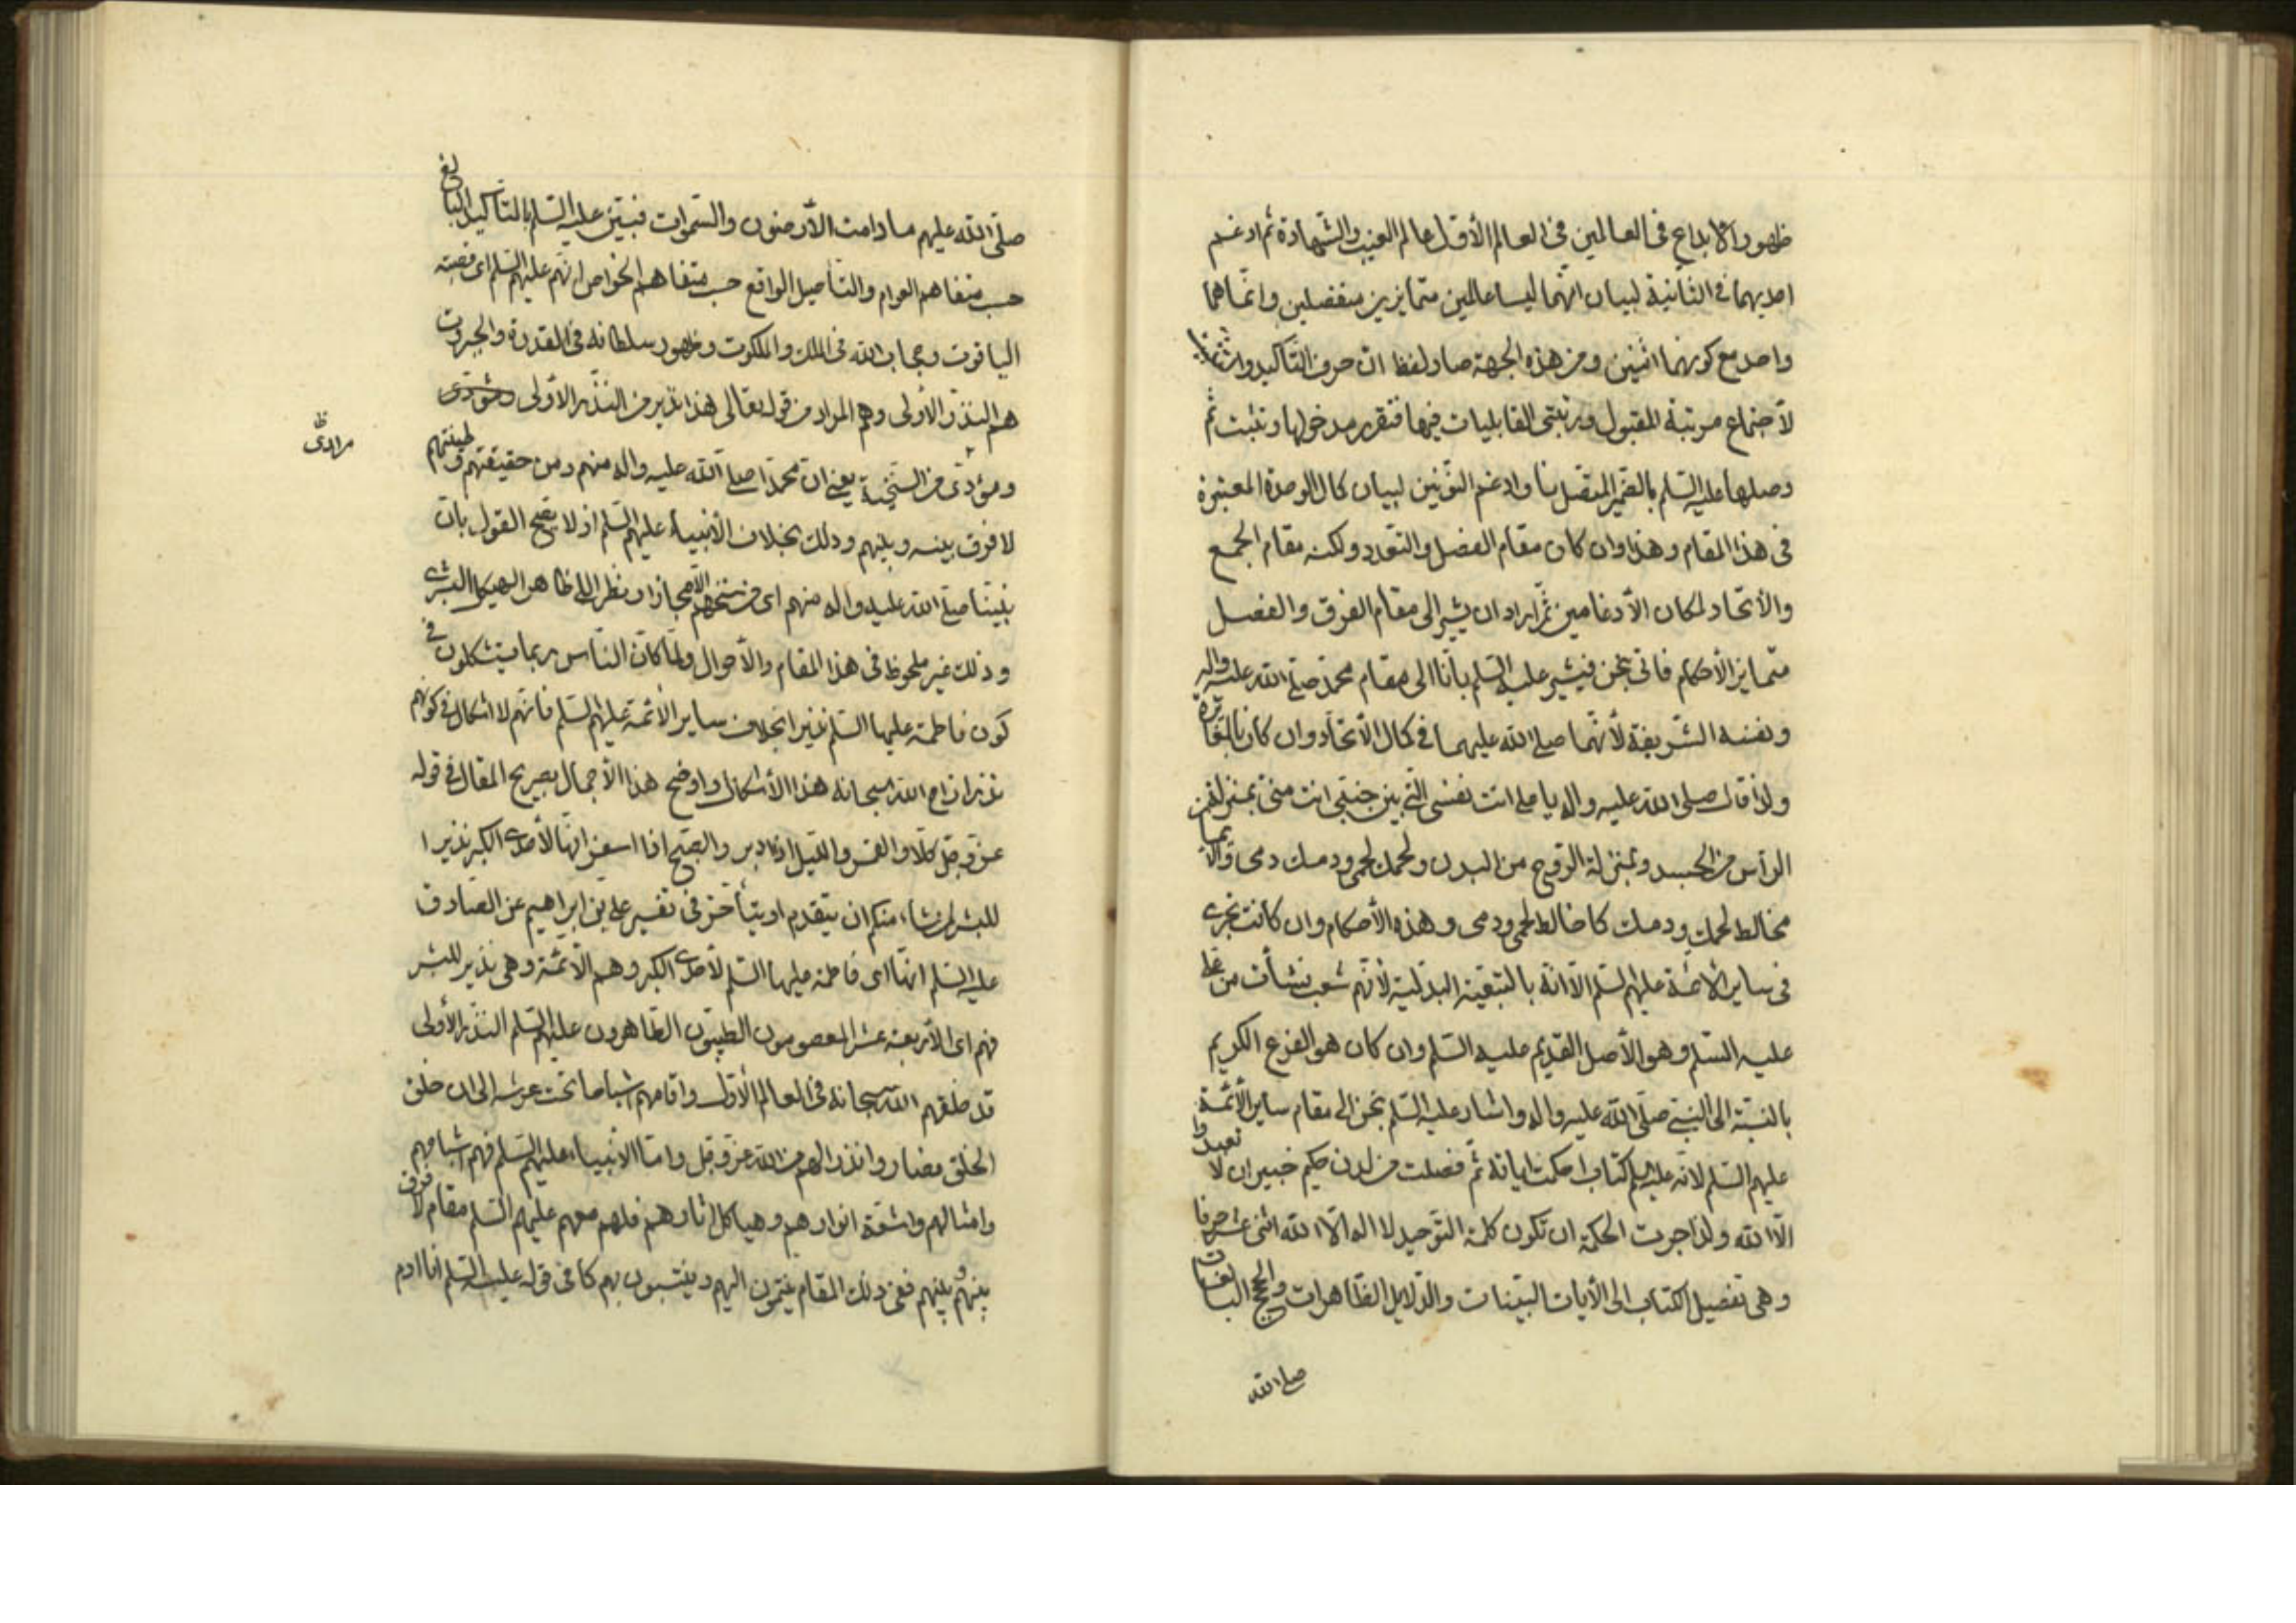 ظهور الابداع فى العالمين فى العالم الأول عالم الغيب والشهادة ثم ادغم
احديهما فى الثانية لبيان انهما ليسا عالمين متمايزين منفصلين وانما هما
واحد مع كونهما اثنين ومن هذه الجهة صار لفظ ان حرف التأكيد
لأجتماع مرتبة المقبول ومرتبتى القابليات فيها فتقرر مدخولها وتثبت ثم
وصلها عليه السلم بالضمير المتصل بنا وادغم النونين لبيان كمال الوحدة المعتبرة
فى هذا المقام وهذا وان كان مقام الفصل والتعدد ولكنه مقام الجمع
والأتحاد لمكان الأدغامين ثم اراد ان يشير الى مقام الفرق والفصل
متمايز الأحكام فاتى بنحن فيشير عليه السلم بانا الى مقام محمد صلى الله عليه واله
ونفسه الشريفة لأنهما صلى الله عليهما فى كمال الأتحاد وان كان بالمغايرة
ولذا قال صلى الله عليه واله يا على انت نفسى التى بين جنبى انت منى بمنزلة
الرأس من الجسد وبمنزلة الروح من البدن ولحمك لحمى ودمك دمى والأيمان
مخالط لحمك ودمك كما خالط لحمى ودمى وهذه الأحكام وان كانت تجرى
فى ساير الأئمة عليهم السلم الا انه بالتبعية البدلية لأنهم شعب نشأت من على
عليه السلم وهو الأصل القديم عليه السلم وان كان هو الفرع الكريم
بالنسبة الى النبى صلى الله عليه واله واشار عليه السلم بنحن الى مقام ساير الأئمة
عليهم السلم لانه عليه السلم كتاب احكمت اياته ثم فصلت من لدن حكيم خبير ان لا تعبدوا
الا الله ولذا جرت الحكمة ان تكون كلمة التوحيد لا اله الا الله اثنى عشر حرفا
وهى تفصيل الكتاب الى الأيات البينات والدلايل الظاهرات والحجج البالغات
صلى الله
صلى الله عليهم ما دامت الأرضون والسموات فبين عليه السلم بالتأكيد البالغ
حسب متفاهم العوام والتأصيل الواقع حسب متفاهم الخواص انهم عليهم السلم اى قصبة
الياقوت وحجاب الله فى الملك والملكوت وظهور سلطانه فى القدرة والجبروت
هم النذر الأولى وهم المراد من قوله تعالى هذا نذير من النذر الأولى
مرادى ظ
ومؤدى من السنخية يعنى ان محمدا صلى الله عليه واله منهم ومن حقيقتهم وطينتهم
لا فرق بينه وبينهم وذلك بخلاف الأنبياء عليهم السلم اذ لا يصح القول بان
نبينا صلى الله عليه واله منهم اى من سنخهم الا مجازا ونظرا الى ظاهر الهيكل البشرى
وذلك غير ملحوظ فى هذا المقام والأحوال ولما كان الناس ربما يستشكلون فى
كون فاطمة عليها السلم نذيرا بخلاف ساير الأئمة عليهم السلم فانهم لا اشكال فى كونهم
نذرا ازاح الله سبحانه هذا الأشكال واوضح هذا الأجمال بصريح المقال فى قوله
عز وجل كلا والقمر والليل اذ ادبر والصبح اذا اسفر انها لأحدى الكبر نذيرا
للبشر لمن شاء منكم ان يتقدم او يتأخر فى تفسير على بن ابراهيم عن الصادق
عليه السلم انها اى فاطمة عليها السلم لأحدى الكبر وهم الأئمة وهى نذير للبشر
فهم اى الأربعة عشر المعصومون الطيبون الطاهرون عليهم السلم النذر الأولى
قد خلقهم الله سبحانه فى العالم الأول واقامهم اشباحا تحت عرشه الى ان خلق
الخلق فصاروا نذرا لهم من الله عز وجل واما الأنبياء عليهم السلم فهم اشباحهم
وامثالهم واشعة انوارهم وهياكل اثارهم فلهم معهم عليهم السلم مقام لا فرق
بينهم وبينهم ففى ذلك المقام ينتمون اليهم وينتسبون بهم كما فى قوله عليه السلم انا ادم